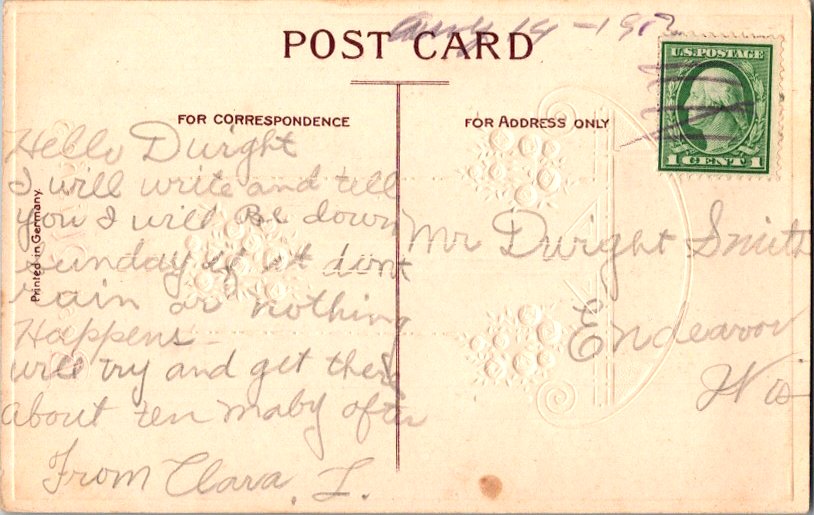 POST CARD
Aug 19 - 191
U.S. POSTAGE
1 CENT 1
FOR CORRESPONDENCE
FOR ADDRESS ONLY
Printed in Germany
Hello Dwight
I will write and tell
you I will Be down
sunday if it dont
rain or nothing
Happens
will try and get there
about ten maby after
From Clara. L.
Mr Dwight Smith
Endeavor
Wis